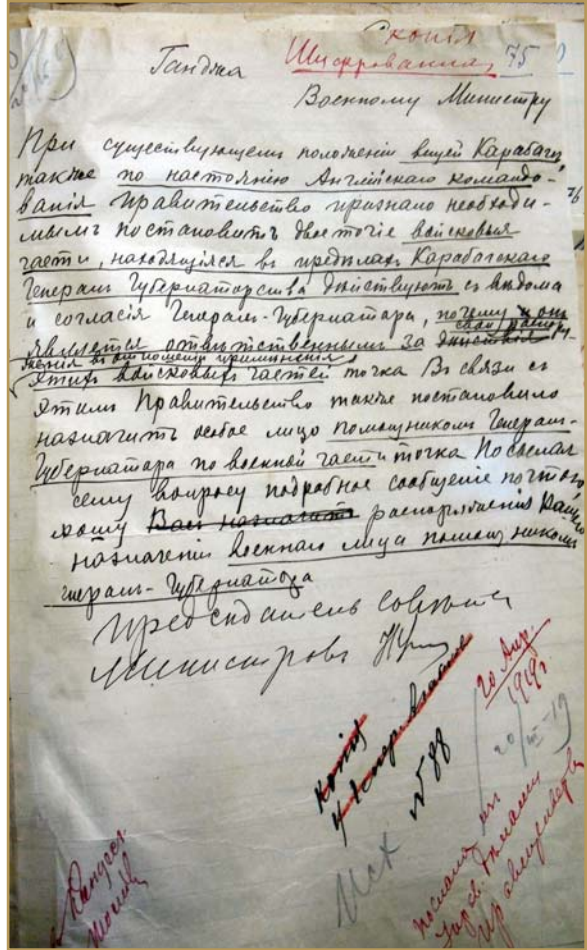 Копія
Ганджа Шифрованная 75
Военному Министру
При существующемъ положеніи вещей Карабаге,
также по настоянію Англійскаго командо-
ванія Правительство признало необходи-
мымъ постановить двоеточіе войсковыя
части, находящіяся въ предѣлахъ Карабагскаго
Генералъ Губернаторства дѣйствуютъ съ вѣдома
и согласія Генералъ-Губернатора, почему и онъ
является отвѣтственнымъ за дѣйствія
свои распоря-
женія въ отношеніи примѣненія
этихъ войсковыхъ частей точка Въ связи съ
этимъ Правительство также постановило
назначить особое лицо помощникомъ Генералъ-
Губернатора по военной части точка По
сему вопросу подробное сообщеніе почтой
Васъ назначить распоряженія
назначеніи военнаго лица помощникомъ
генералъ-Губернатора
Председатель Совѣта
Министровъ
20 Апр.
1919г.
20/III-19
Копія
№ 88
Исх
послана